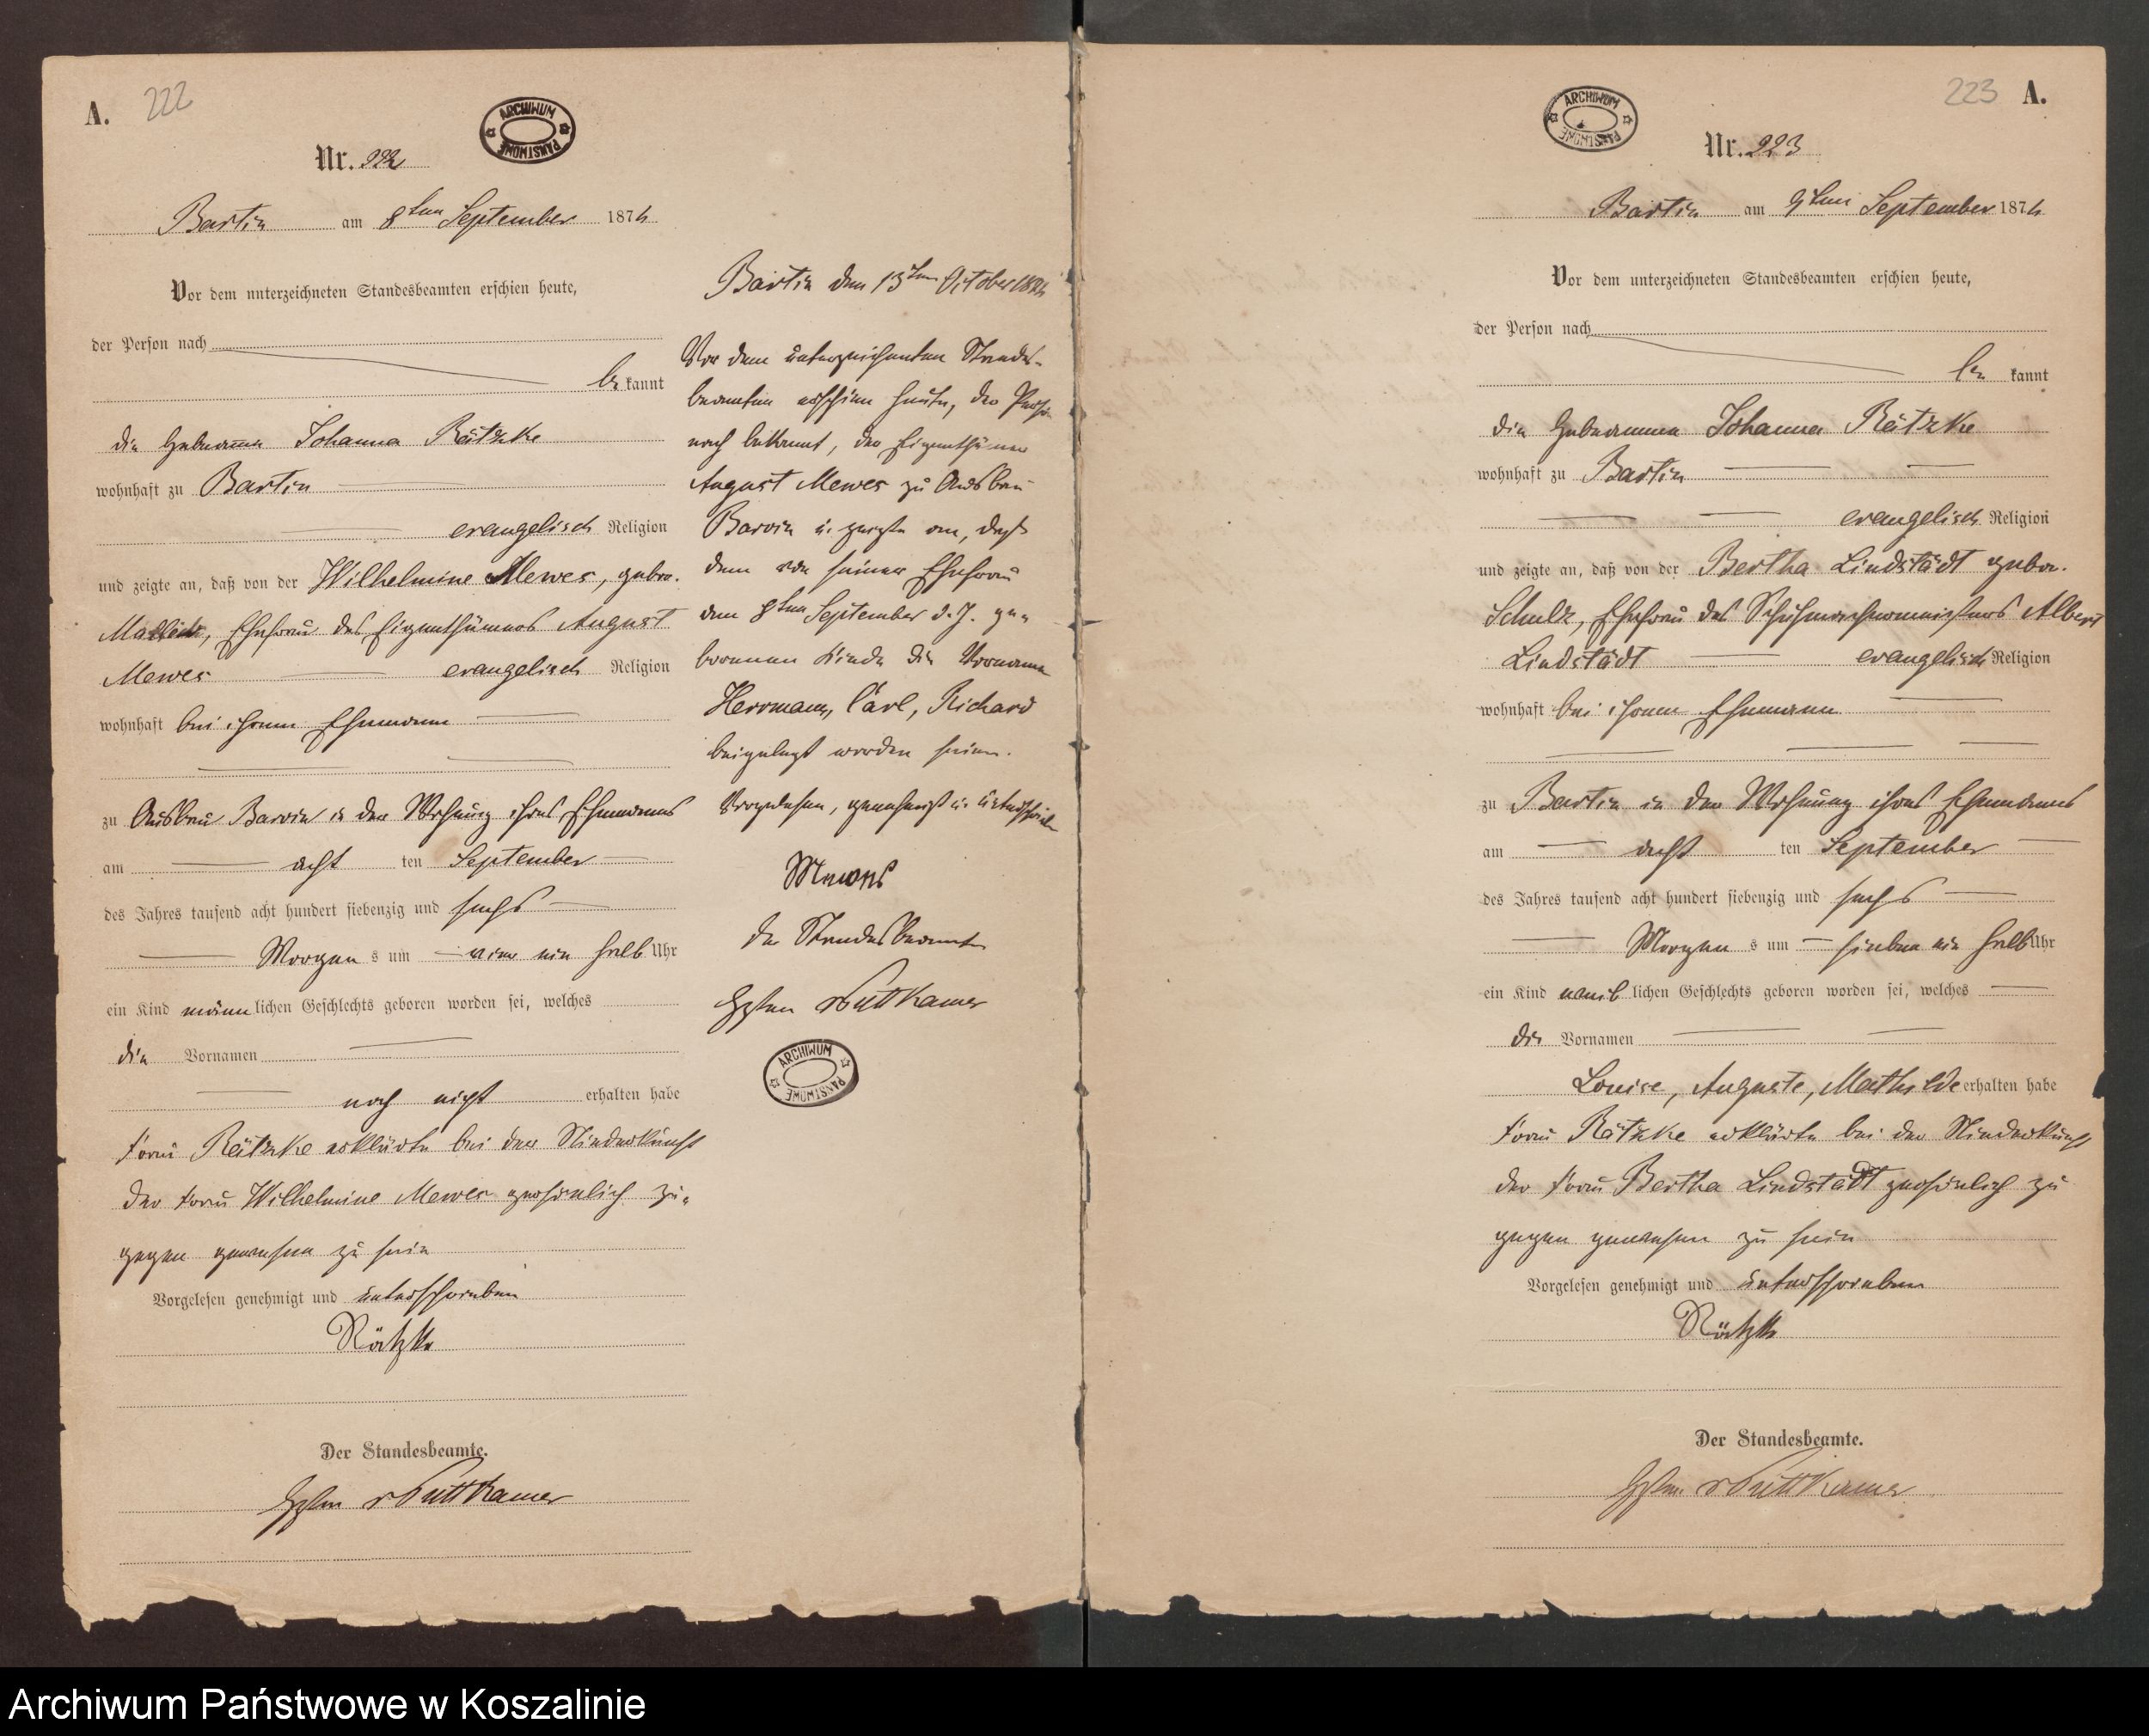 A. 222
ARCHIWUM PAŃSTWOWE
Nr. 222
Bartin am 8ten September 1876
Vor dem unterzeichneten Standesbeamten erschien heute,
der Person nach
be kannt
die Hebamme Johanna Rätzke
wohnhaft zu Bartin
evangelisch Religion
und zeigte an, daß von der Wilhelmine Mewes, gebor.
Ehefrau des Eigenthümers August
Mewes evangelisch Religion
wohnhaft bei ihrem Ehemann
zu Ausbau Barvin in der Wohnung ihres Ehemannes
am acht ten September
des Jahres tausend acht hundert siebenzig und sechs
Morgen s um ein halb Uhr
ein Kind männ lichen Geschlechts geboren worden sei, welches
die Vornamen
noch nicht erhalten habe
Frau Rätzke erklärte bei der Niederkunft
der Frau Wilhelmine Mewes persönlich zu-
gegen gewesen zu sein
Vorgelesen genehmigt und unterschrieben
Rätzke
Der Standesbeamte.
v Puttkamer
Bartin den 13ten October 1876
Vor dem unterzeichneten Standes-
beamten erschien heute, der Person
nach bekannt, der Eigenthümer
August Mewes zu Ausbau
Barvin u. zeigte an, daß
dem von seiner Ehefrau
am 8ten September d. J. ge-
borenen Kinde die Vornamen
Herrmann, Carl, Richard
beigelegt worden seien.
Vorgelesen, genehmigt u. unterschrieben
Mewes
Der Standesbeamte
v Puttkamer
ARCHIWUM PAŃSTWOWE
223 A.
ARCHIWUM PAŃSTWOWE
Nr. 223
Bartin am 9ten September 1876
Vor dem unterzeichneten Standesbeamten erschien heute,
der Person nach
be kannt
die Hebamme Johanna Rätzke
wohnhaft zu Bartin
evangelisch Religion
und zeigte an, daß von der Bertha Lindstädt gebor.
Schulz, Ehefrau des Schuhmachermeisters Albert
Lindstädt evangelisch Religion
wohnhaft bei ihrem Ehemann
zu Bartin in der Wohnung ihres Ehemannes
am acht ten September
des Jahres tausend acht hundert siebenzig und sechs
Morgen s um sieben ein halb Uhr
ein Kind weib lichen Geschlechts geboren worden sei, welches
die Vornamen
Louise, Auguste, Mathilde erhalten habe
Frau Rätzke erklärte bei der Niederkunft
der Frau Bertha Lindstädt persönlich zu
gegen gewesen zu sein
Vorgelesen genehmigt und unterschrieben
Rätzke
Der Standesbeamte.
v Puttkamer
Archiwum Państwowe w Koszalinie